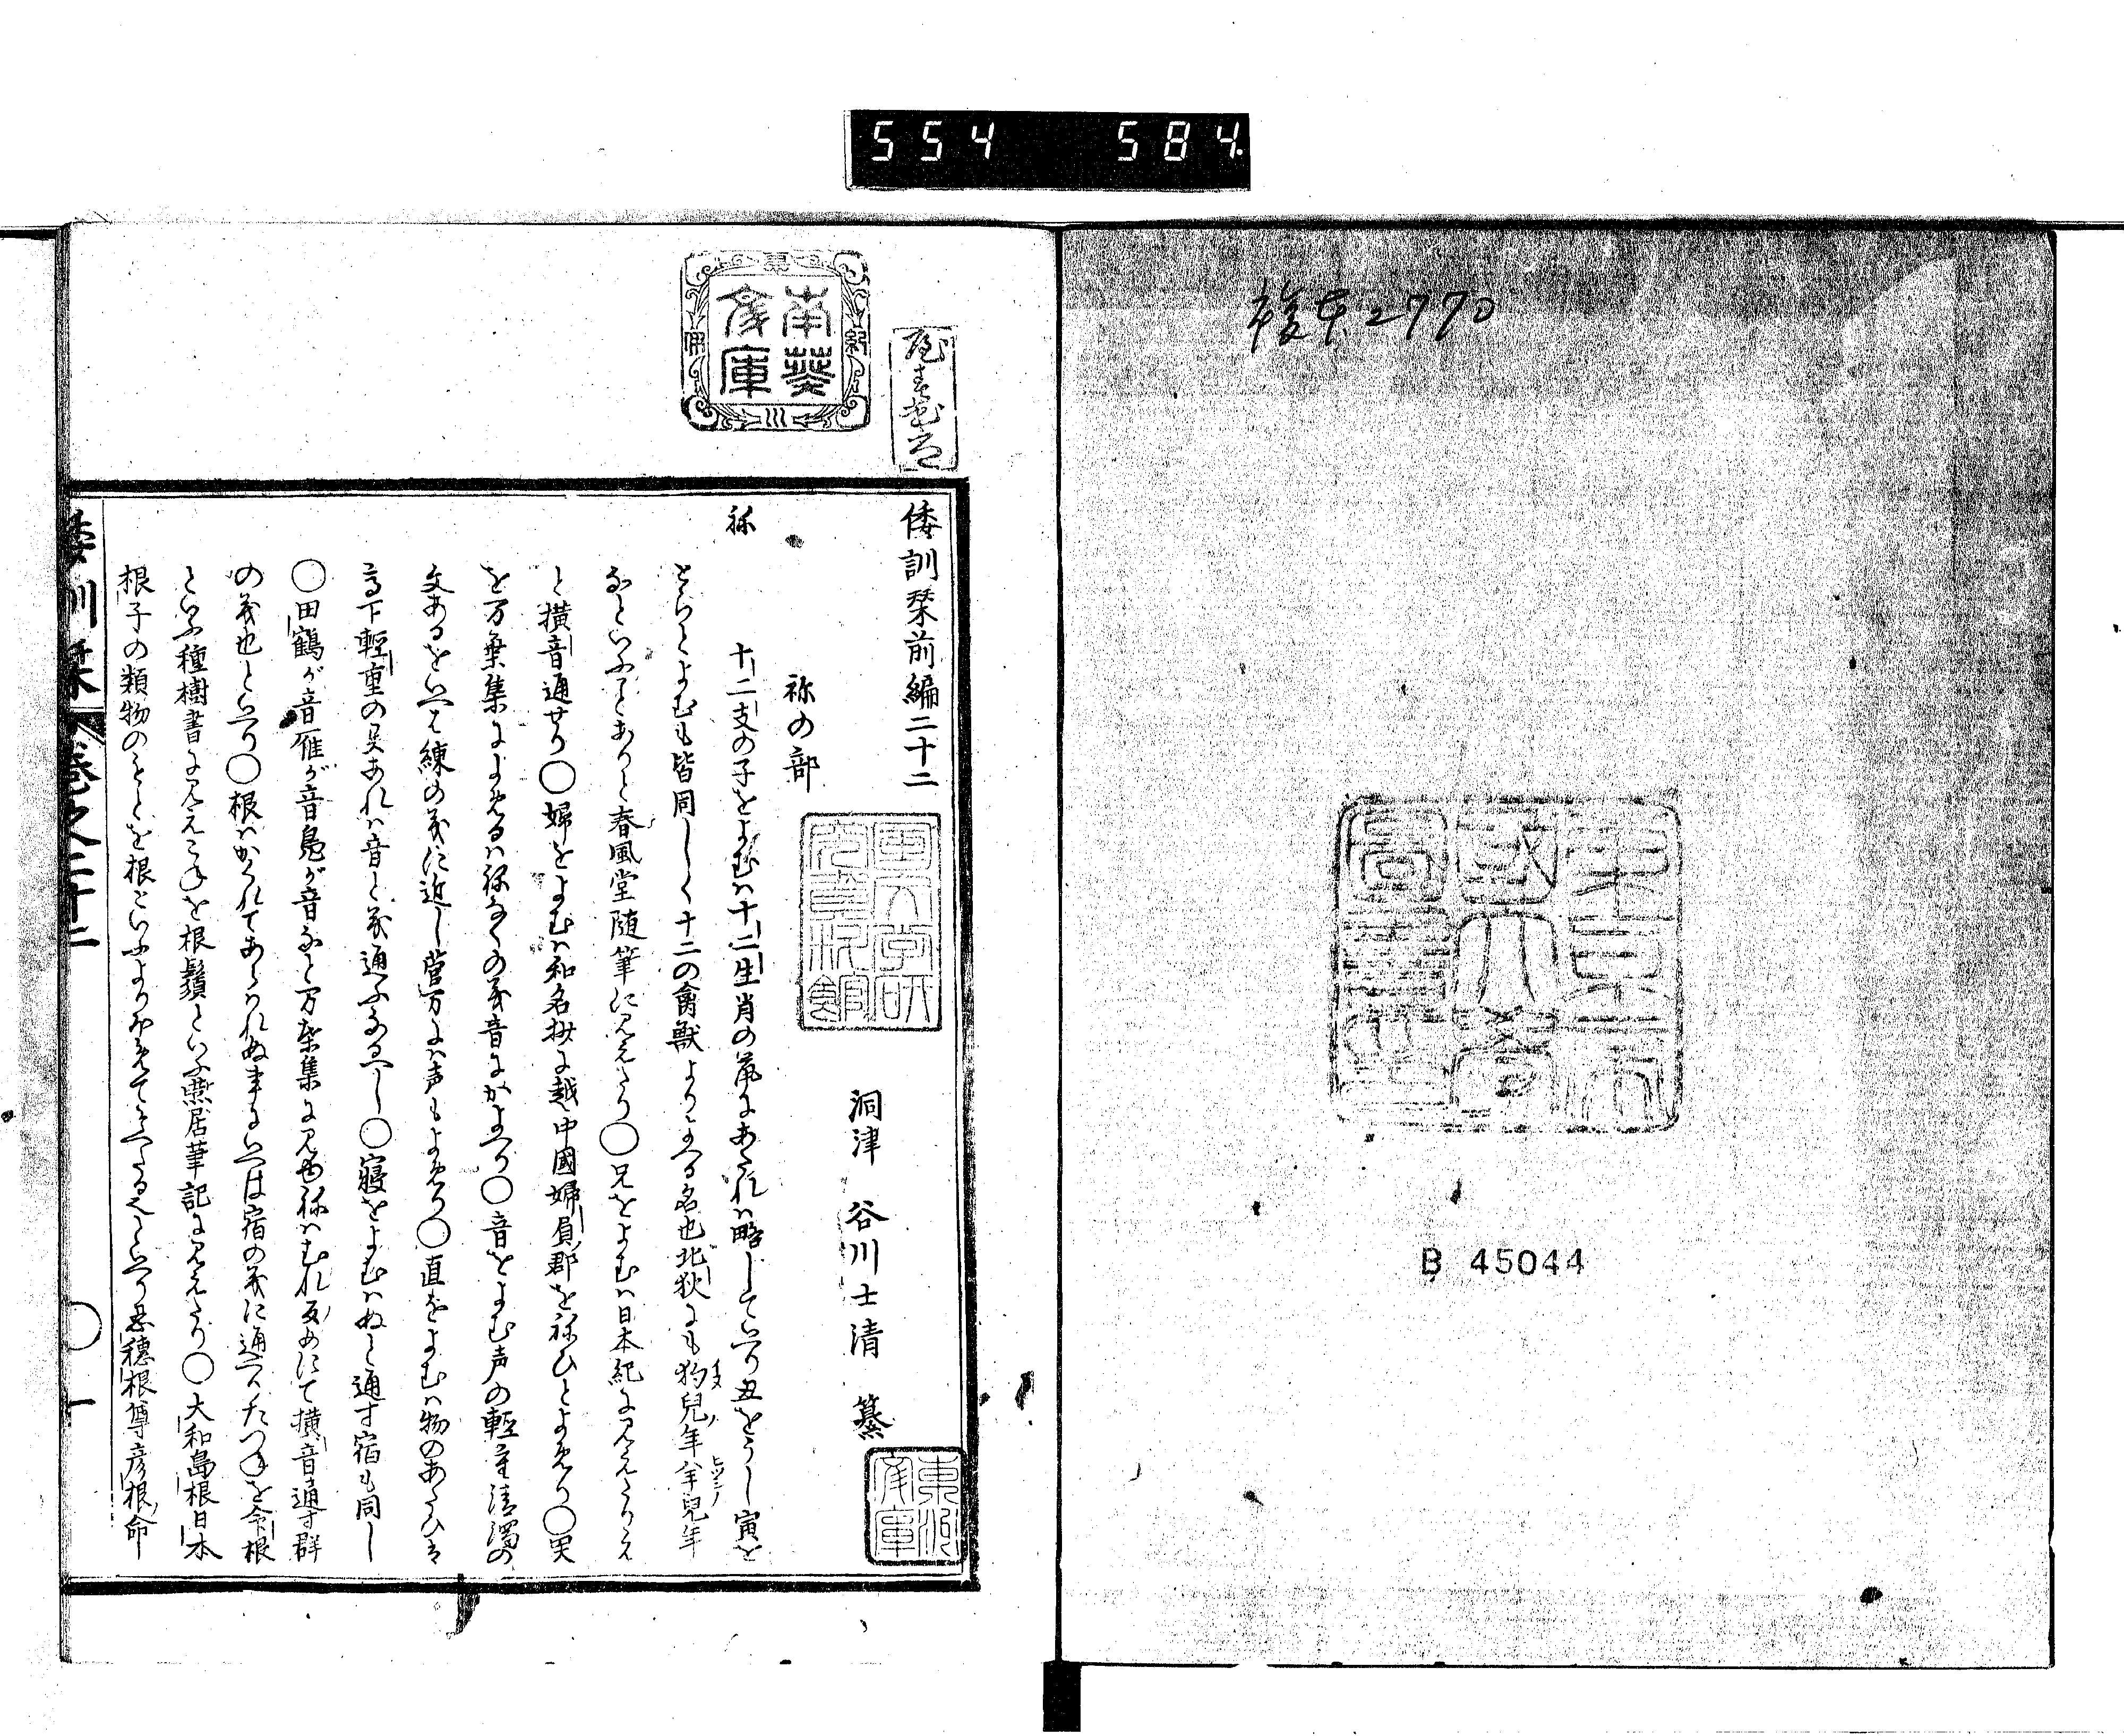 554 584.
複本2770
B 45044
南葵文庫
倭訓栞前編二十二
洞津 谷川士清 纂
祢の部
祢 十二支の子をよむハ十二生肖の鼠にあたれハ略していへり丑をうし寅を
とらとよむも皆同しく十二の禽獣よりいへる名也北狄にも狗兒年羊兒年
なといふことありと春風堂随筆に見えたり〇兄をよむハ日本紀に見えたりえ
と横音通せり〇婦をよむハ和名抄に越中國婦負郡を祢ひとよめり〇哭
を万葉集によめるハ祢なくの義音にかよへり〇音をよむ声の輕重清濁の
文あるをいへは練の義に近し菅万にハ声もよめり〇直をよむハ物のあたひは
高下輕重の異あれハ音と義通ふなるへし〇寢をよむハぬと通す宿も同し
〇田鶴が音雁が音鳧が音なと万葉集に見ゆ祢ハむれ反めにて横音通す群
の義也といへり〇根ハかくれてあらハれぬ事にいへは宿の義に通へりたつねを命根
といふ種樹書に見えこねを根鬚といふ燕居筆記に見えたり〇大和島根日本
根子の類物のもとを根といふよりほめてそへたることといへり忍穂根尊彦根命
倭訓栞 巻之二十二 〇一